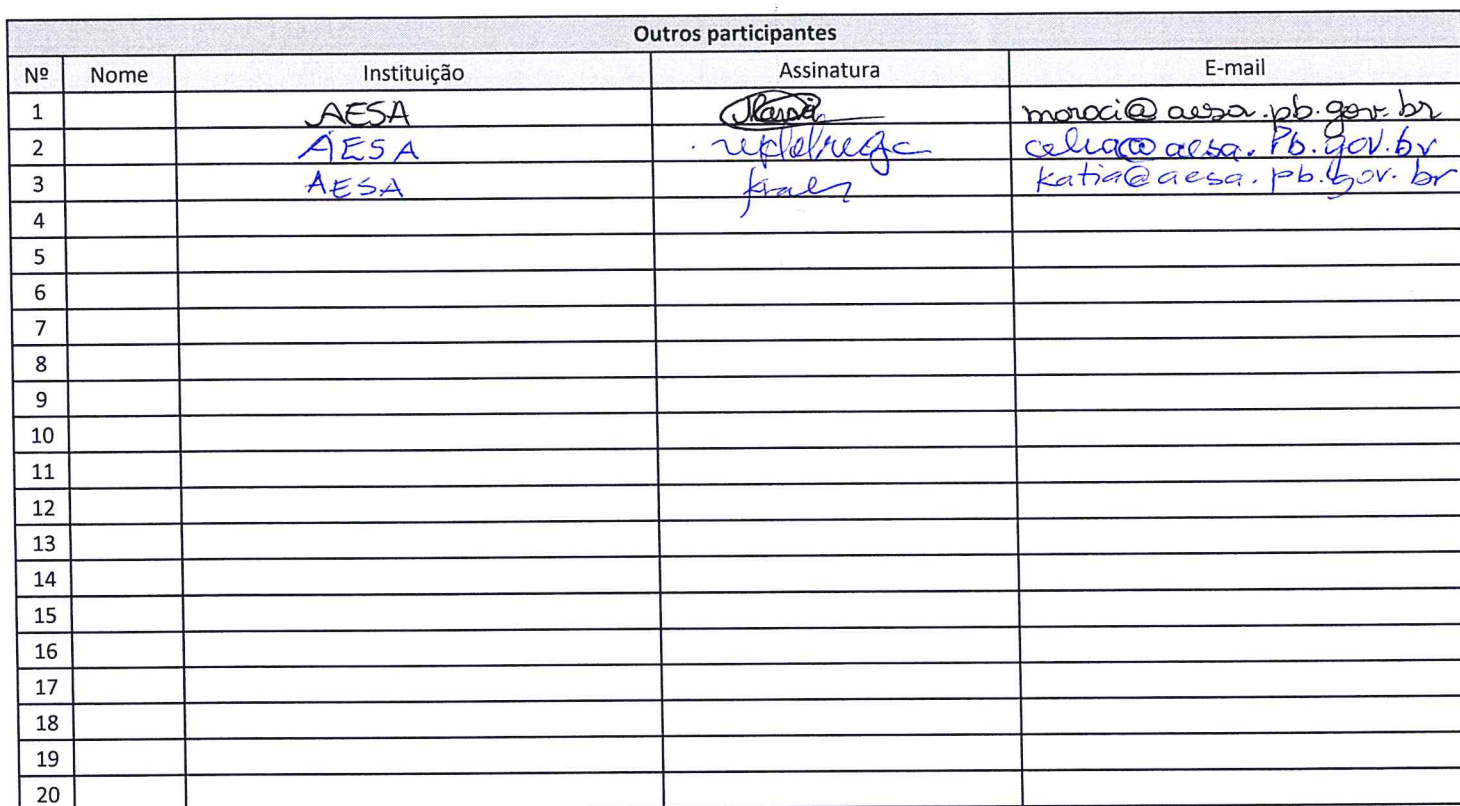 Outros participantes
Nº Nome Instituição Assinatura E-mail
1 AESA maroci@aesa.pb.gov.br
2 AESA celia@aesa.Pb.gov.br
3 AESA katia@aesa.pb.gov.br
4
5
6
7
8
9
10
11
12
13
14
15
16
17
18
19
20